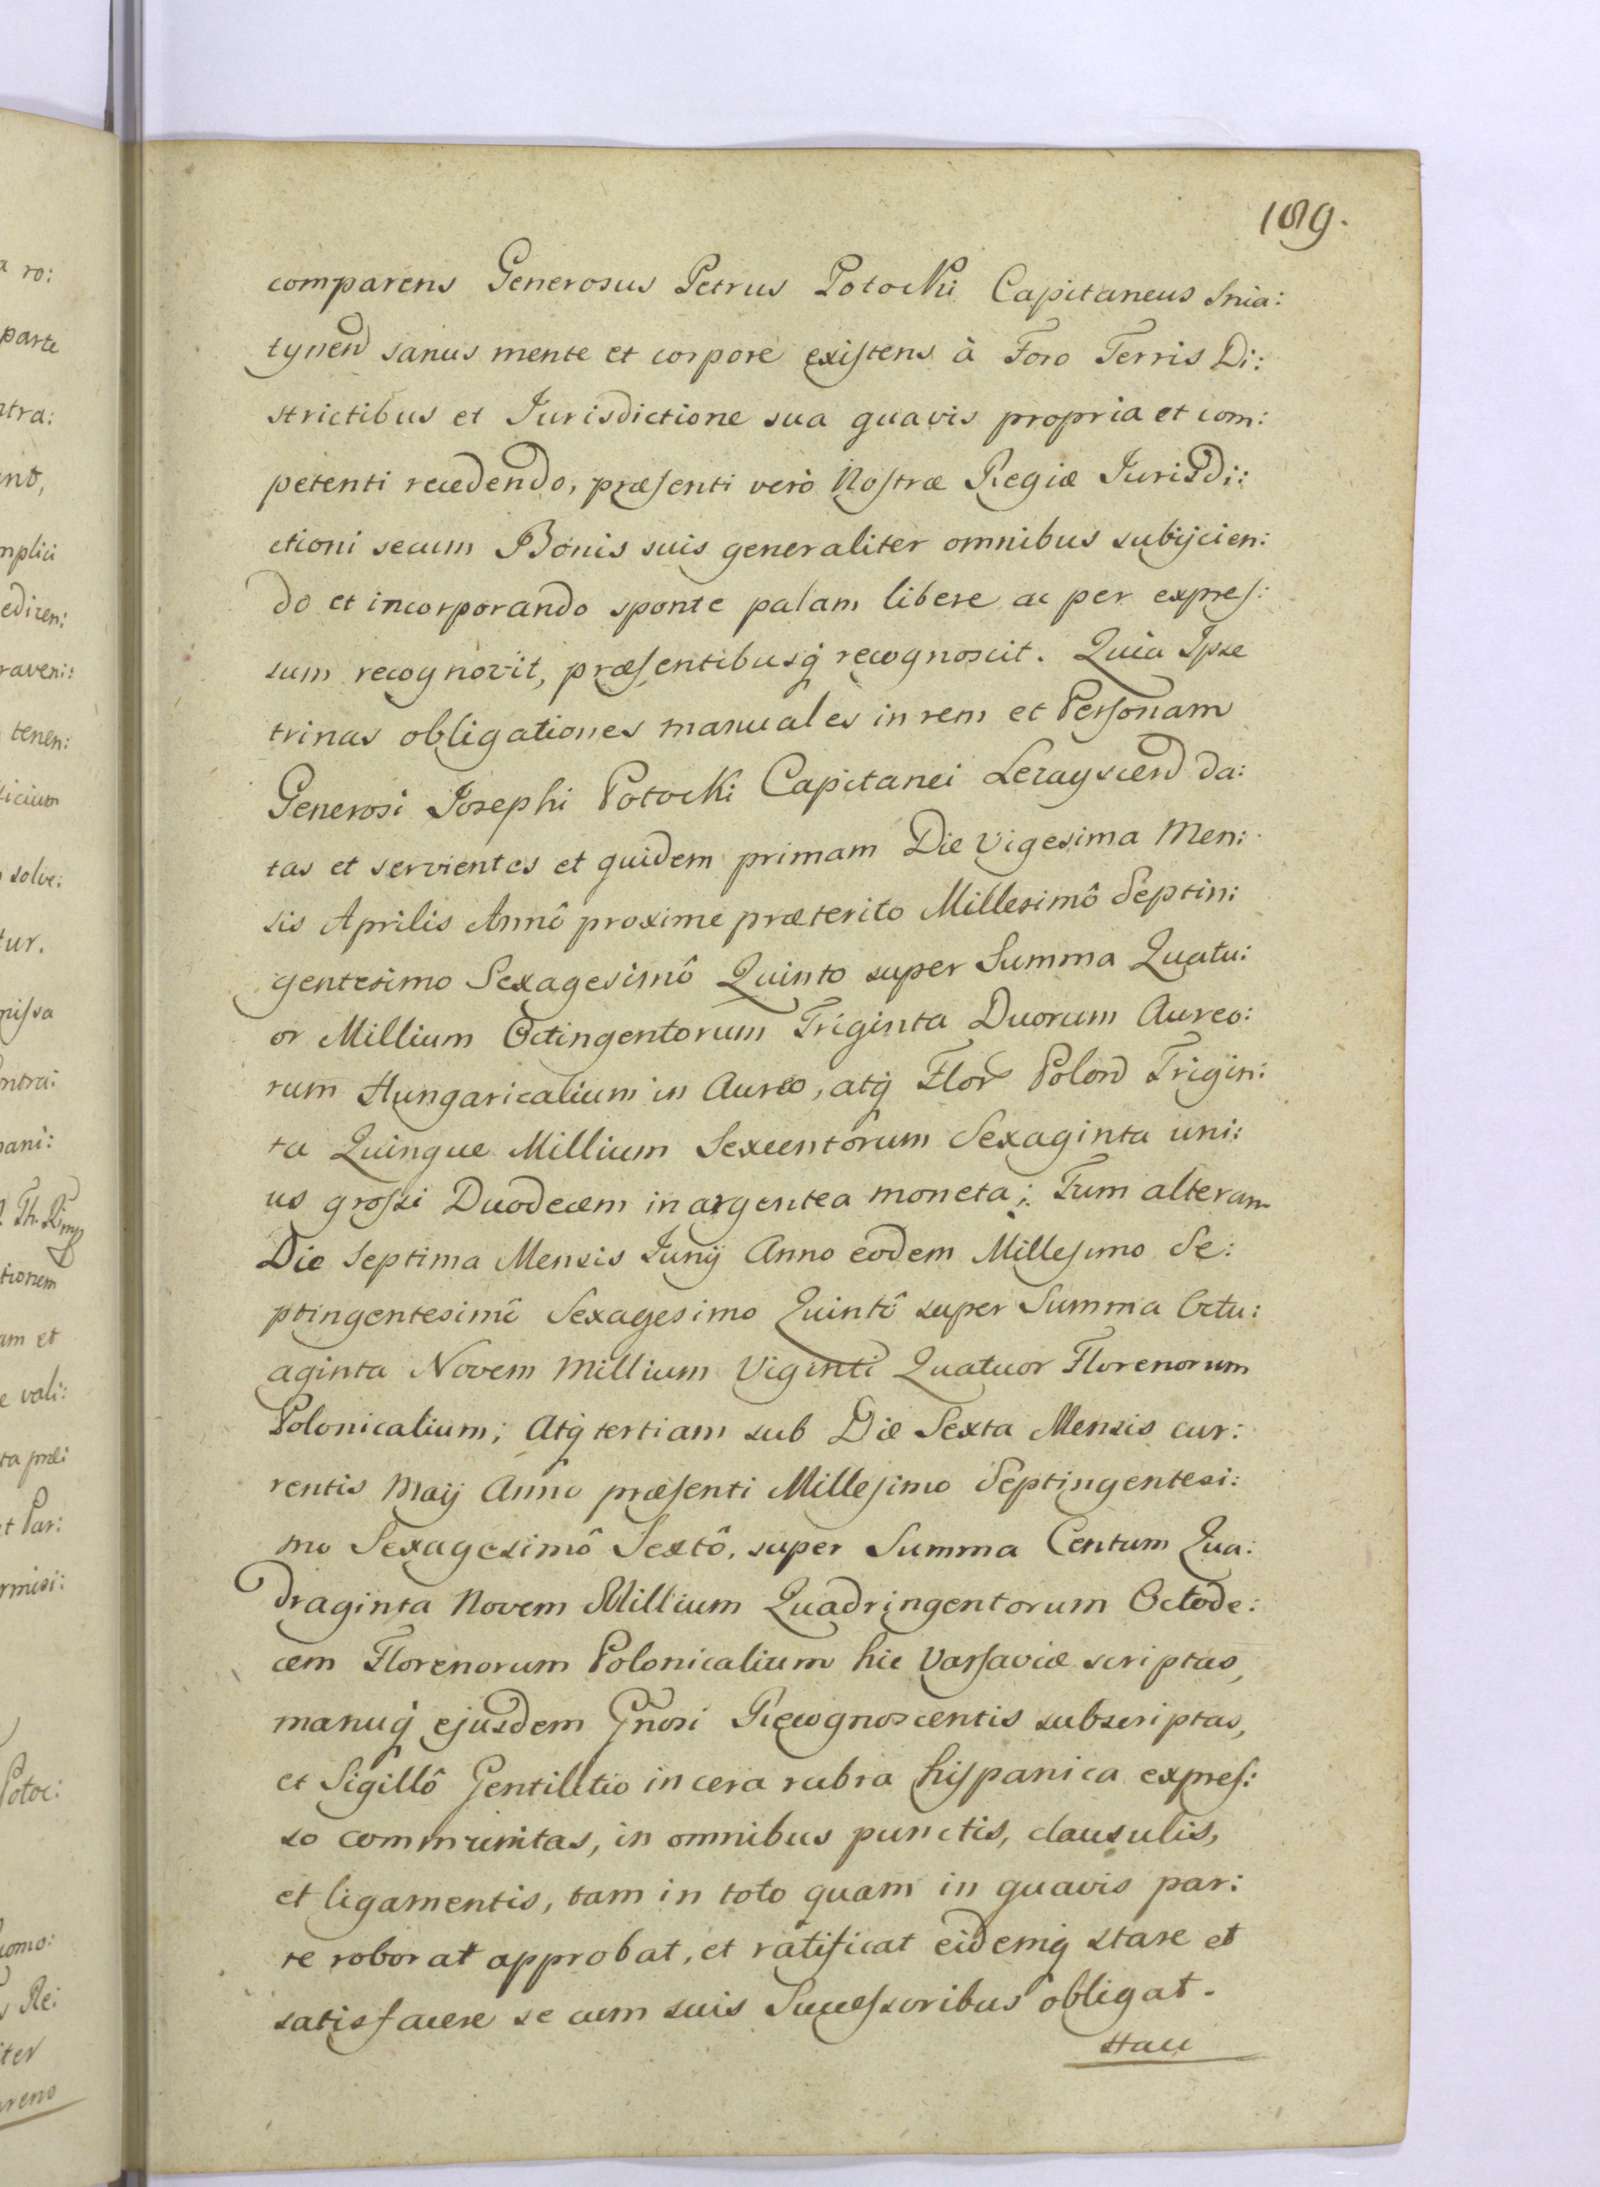 189.
comparens Generosus Petrus Potocki Capitaneus Snia:
tynen sanus mente et corpore existens à Foro Terris Di:
strictibus et Jurisdictione sua quavis propria et com:
petenti recedendo, præsenti verò Nostræ Regiæ Jurisdi:
ctioni secum Bonis suis generaliter omnibus subijcien:
do et incorporando sponte palam libere ac per expres:
sum recognovit, præsentibusq recognoscit. Quia Ipse
trinas obligationes manuales in rem et Personam
Generosi Josephi Potocki Capitanei Lezayscen da:
tas et servientes et quidem primam Die Vigesima Men:
sis Aprilis Annô proxime præterito Millesimô Septin:
gentesimo Sexagesimô Quinto super Summa Quatu:
or Millium Octingentorum Triginta Duorum Aureo:
rum Hungaricalium in Aureo, atq Flor Polon Trigin:
ta Quinque Millium Sexcentorum Sexaginta uni:
us grossi Duodecem in argentea moneta; Tum alteram
Die Septima Mensis Junij Anno eodem Millesimo Se:
ptingentesimô Sexagesimo Quintô super Summa Octu:
aginta Novem Millium Viginti Quatuor Florenorum
Polonicalium; Atq tertiam sub Die Sexta Mensis cur:
rentis Maij Anno præsenti Millesimo Septingentesi:
mo Sexagesimô Sextô, super Summa Centum Qua:
draginta Novem Millium Quadringentorum Octode:
cem Florenorum Polonicalium hic Varsaviæ scriptas,
manuq ejusdem Gnosi Recognoscentis subscriptas,
et Sigillô Gentilitio in cera rubra hispanica expres:
so communitas, in omnibus punctis, clausulis,
et ligamentis, tam in toto quam in quavis par:
te roborat approbat, et ratificat eidemq stare et
satisfacere se cum suis Successoribus obligat.
stau